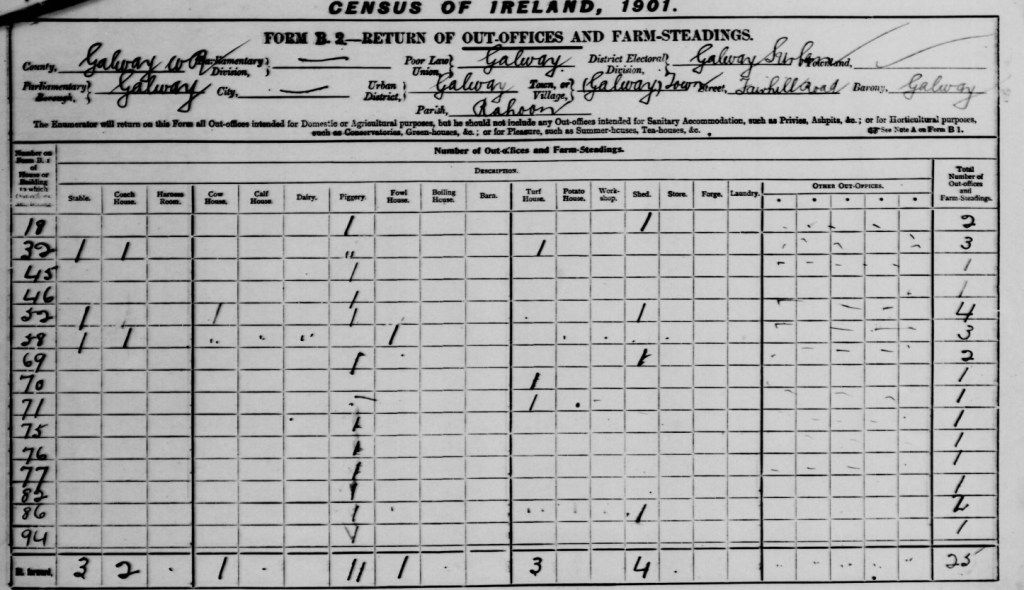 CENSUS OF IRELAND, 1901.
FORM B. 2.—RETURN OF OUT-OFFICES AND FARM-STEADINGS.
County, Galway W R Parliamentary Division, — Poor Law Union, Galway District Electoral Division, Galway
Parliamentary Borough, Galway City, — Urban District, Galway Town, or Village, (Galway) Town Street, Fairhill Road Barony, Galway
Parish, Rahoon
The Enumerator will return on this Form all Out-offices intended for Domestic or Agricultural purposes, but he should not include any Out-offices intended for Sanitary Accommodation, such as Privies, Ashpits, &c.; or for Horticultural purposes,
such as Conservatories, Green-houses, &c.; or for Pleasure, such as Summer-houses, Tea-houses, &c. See Note A on Form B 1.
Number on Form B. 1 of House or Building to which
Number of Out-offices and Farm-Steadings.
DESCRIPTION.
Total Number of Out-offices and Farm-Steadings.
Stable. Coach House. Harness Room. Cow House. Calf House. Dairy. Piggery. Fowl House. Boiling House. Barn. Turf House. Potato House. Work-shop. Shed. Store. Forge. Laundry. OTHER OUT-OFFICES.
* * * * *
18 1 1 2
32 1 1 " 1 3
45 1 1
46 1 1
52 1 1 1 1 4
58 1 1 1 3
69 1 1 2
70 1 1
71 1 1
75 1 1
76 1 1
77 1 1
82 1 1
86 1 1 2
94 1 1
3 2 1 11 1 3 4 25